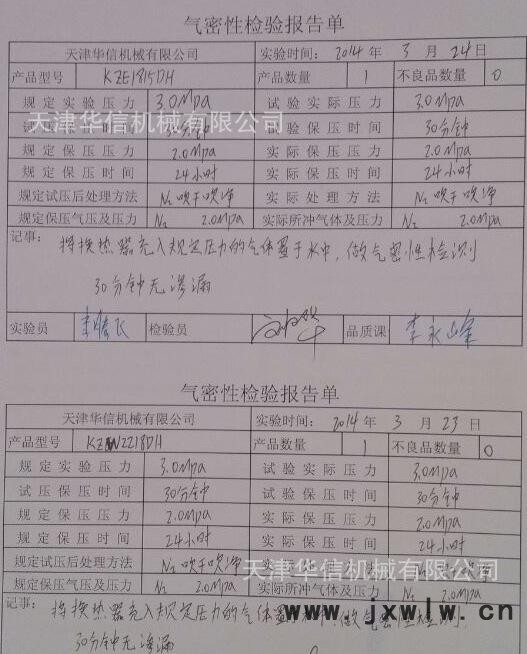 气密性检验报告单
天津华信机械有限公司 实验时间: 2014 年 3 月 24 日
产品型号 KZE1815DH 产品数量 1 不良品数量 0
规定实验压力 3.0Mpa 试验实际压力 3.0Mpa
天津华信机械有限公司
试压保压时间 30分钟 试验保压时间 30分钟
规定保压压力 2.0Mpa 实际保压压力 2.0Mpa
规定保压时间 24小时 实际保压时间 24小时
规定试压后处理方法 N₂吹干吹净 实际处理方法 N₂吹干吹净
规定保压气压及压力 N₂ 2.0Mpa 实际所冲气体及压力 N₂ 2.0Mpa
记事: 将换热器充入规定压力的气体置于水中，做气密性检测
30分钟无渗漏
实验员 李腾飞 检验员 品质课 李永峰
气密性检验报告单
天津华信机械有限公司 实验时间: 2014 年 3 月 23 日
产品型号 KZW2218DH 产品数量 1 不良品数量 0
规定实验压力 3.0Mpa 试验实际压力 3.0Mpa
试压保压时间 30分钟 试验保压时间 30分钟
规定保压压力 2.0Mpa 实际保压压力 2.0Mpa
规定保压时间 24小时 实际保压时间 24小时
规定试压后处理方法 N₂吹干吹净 实
天津华信机械有限公司
规定保压气压及压力 N₂ 2.0Mpa 实际所冲气体及压力 N₂ 2.0Mpa
www.jxwlw.cn
记事: 将换热器充入规定压力的气体置 做气密性检测
30分钟无渗漏